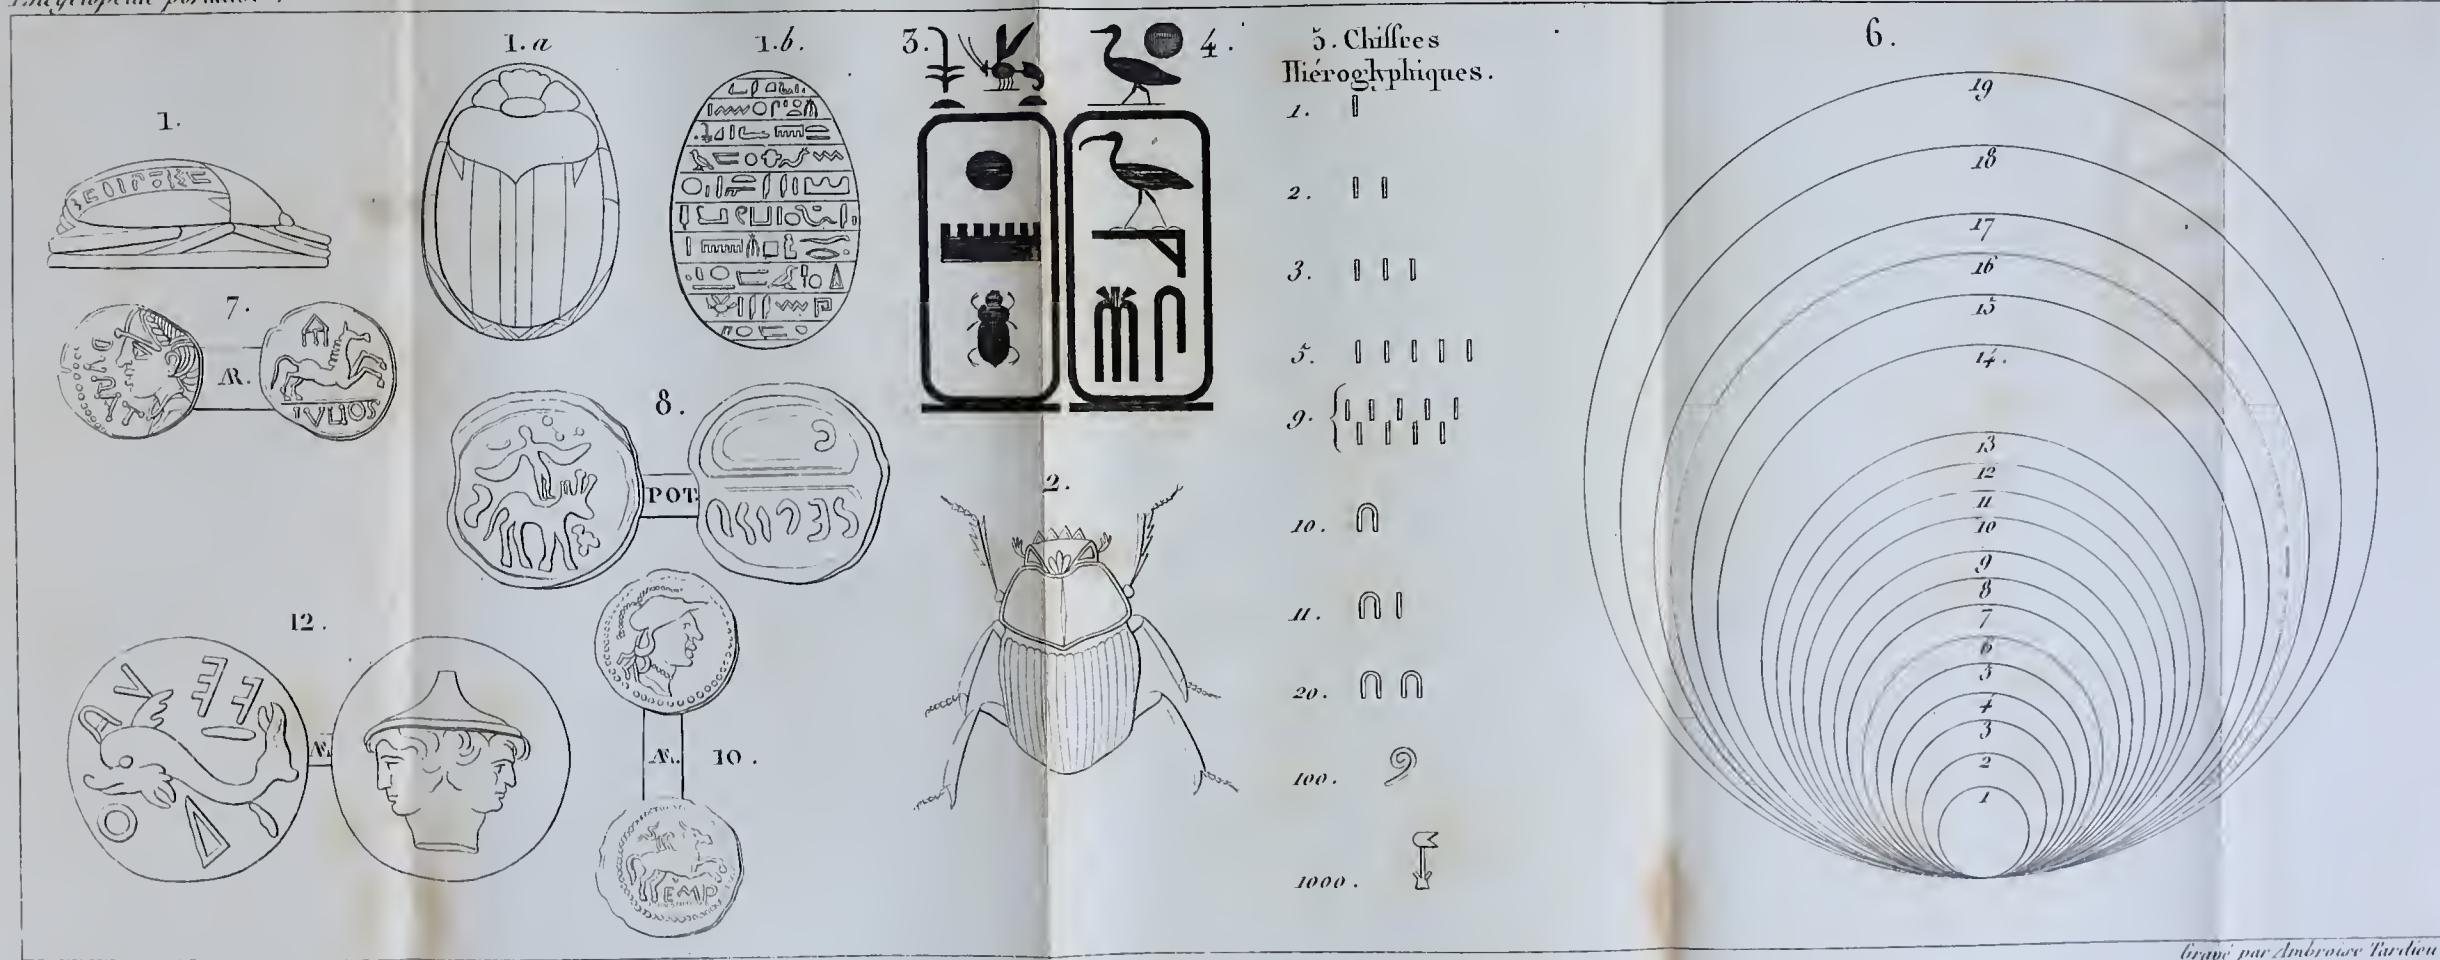 1.
1.a
1.b.
3.
4.
5. Chiffres
Hiéroglyphiques.
1.
2.
3.
5.
9.
10.
11.
20.
100.
1000.
6.
19
18
17
16
15
14.
13
12
11
10
9
8
7
6
5
4
3
2
1
7.
AR.
IVLIOS
8.
POT.
2.
12.
Æ.
10.
TEMP
Gravé par Ambroise Tardieu